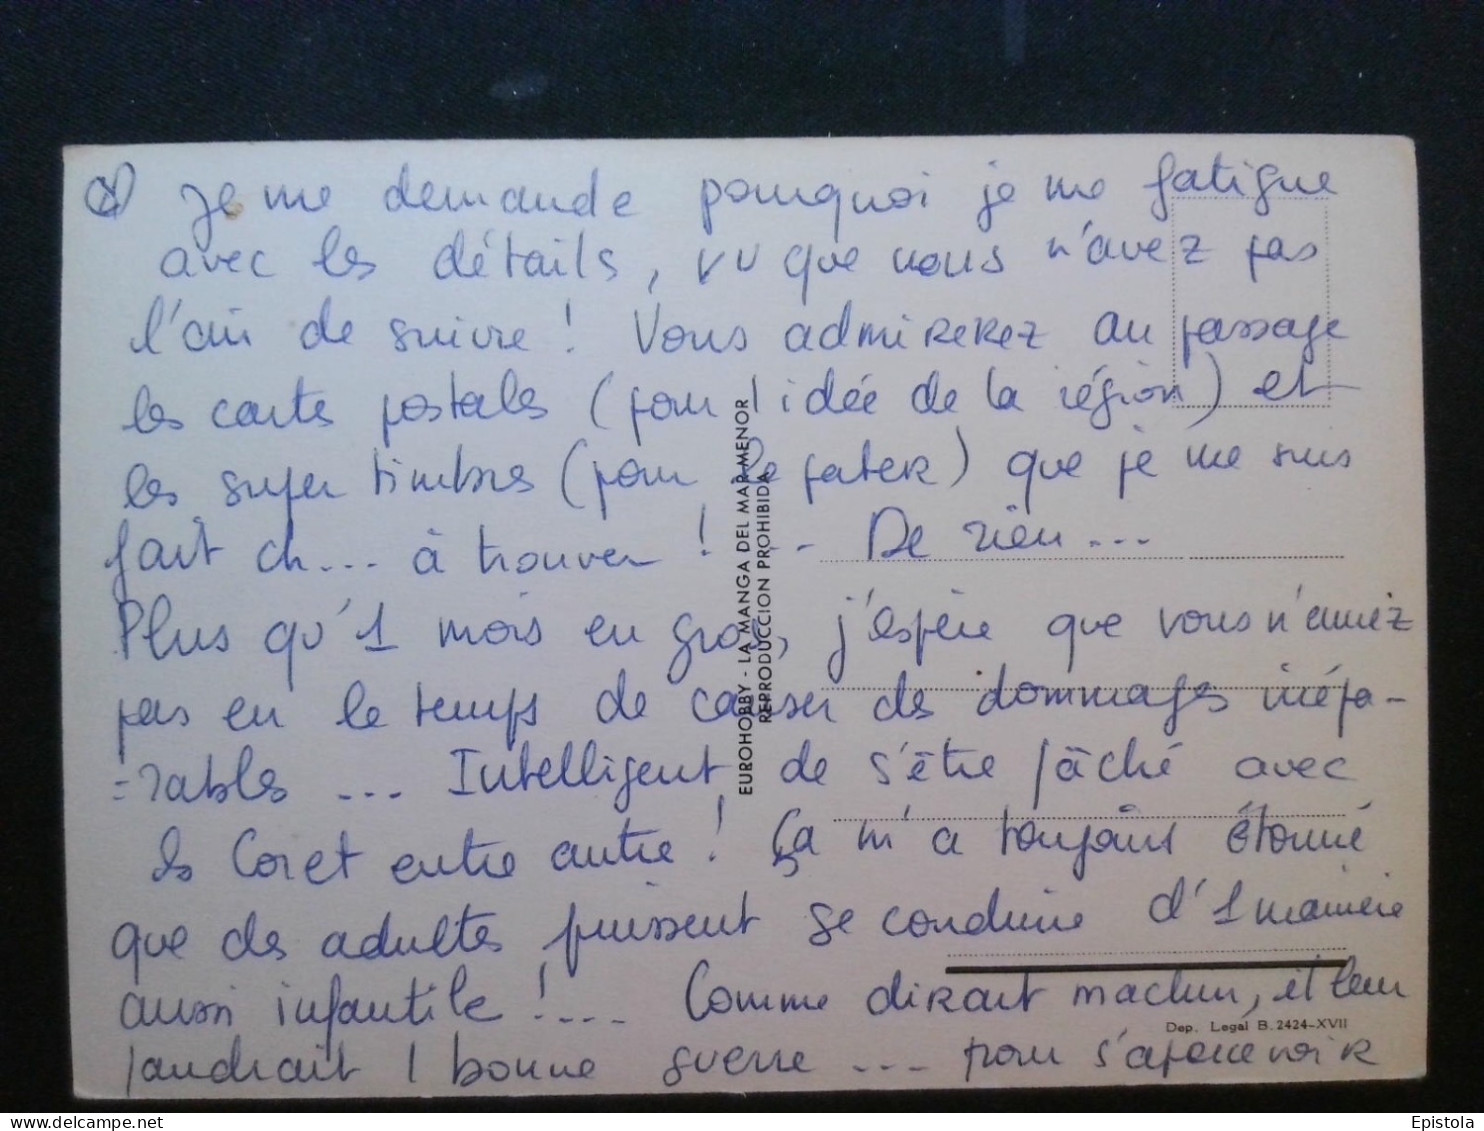 Je me demande pourquoi je me fatigue
avec les détails, vu que vous n'avez pas
l'air de suivre ! Vous admirerez au passage
les cartes postales (pour l'idée de la région) et
les super timbres (pour le pater) que je me suis
fait ch... à trouver ! ... De rien ...
Plus qu'1 mois en gros, j'espère que vous n'aurez
pas eu le temps de causer des dommages irrépa-
-rables ... Intelligent de s'être fâché avec
les Coret entre autre ! Ça m'a toujours étonné
que des adultes puissent se conduire d'1 manière
aussi infantile ! .... Comme dirait machin, il leur
faudrait 1 bonne guerre ... pour s'apercevoir
EUROHOBBY - LA MANGA DEL MAR MENOR
REPRODUCCION PROHIBIDA
Dep. Legal B. 2424-XVII
delcampe.net
Epistola